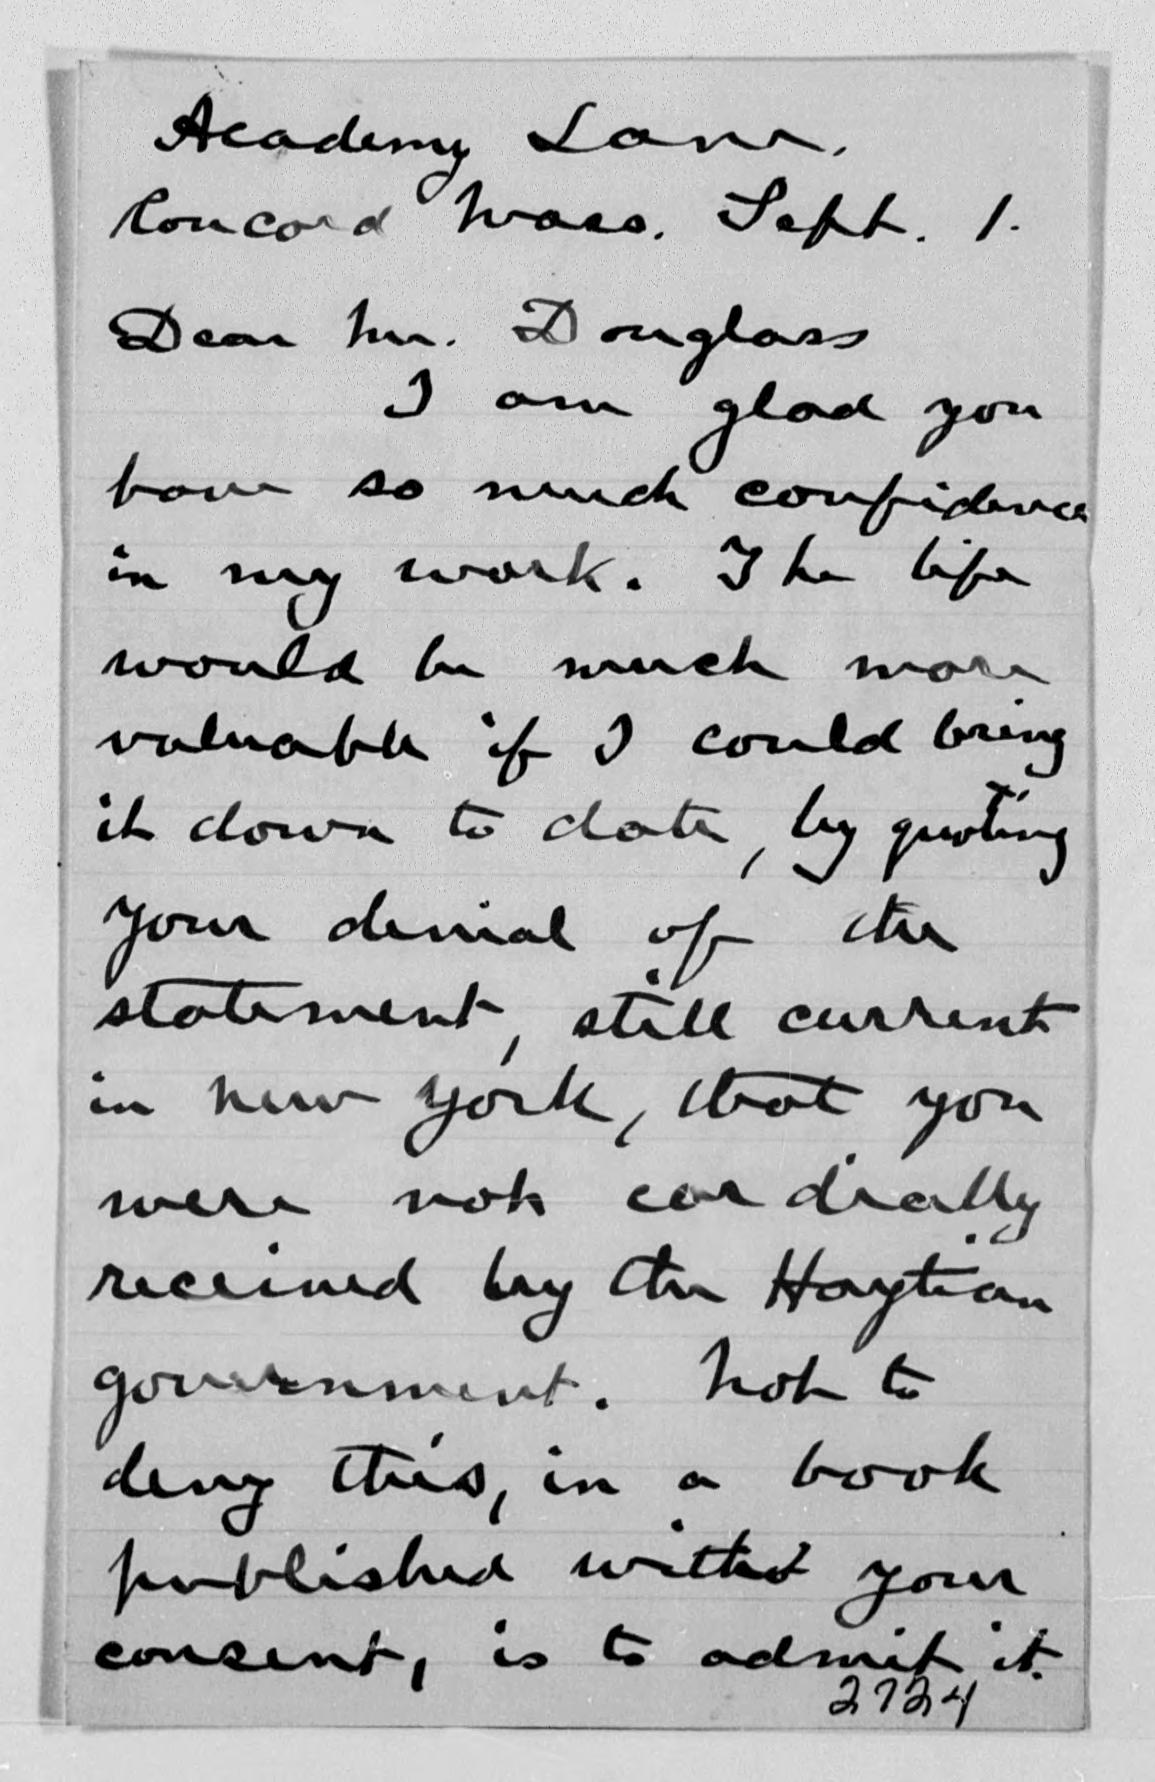 Academy Lane.
Concord Mass. Sept. 1.
Dear Mr. Douglass
I am glad you
have so much confidence
in my work. The life
would be much more
valuable if I could bring
it down to date, by quoting
your denial of the
statement, still current
in New York, that you
were not cordially
received by the Haytian
government. Not to
deny this, in a book
published with your
consent, is to admit it.
2724